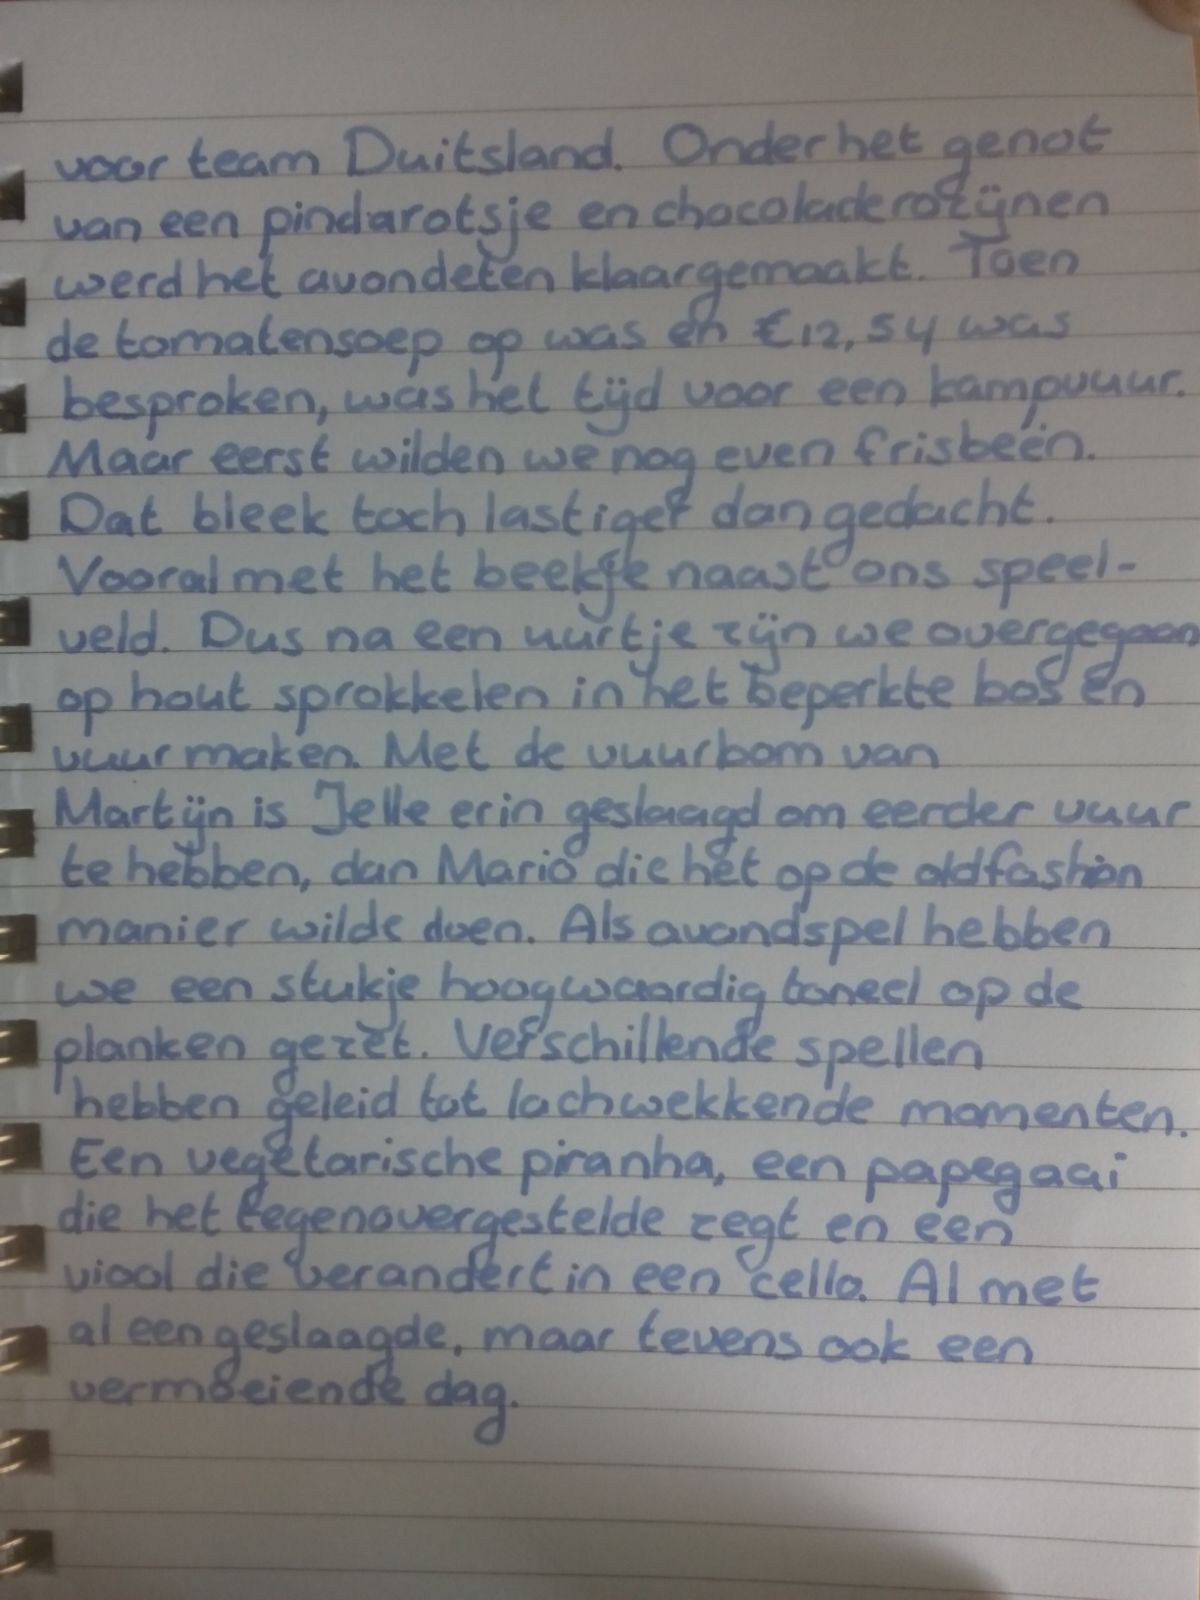 voor team Duitsland. Onder het genot
van een pindarotsje en chocolade rozijnen
werd het avondeten klaargemaakt. Toen
de tomatensoep op was en €12,54 was
besproken, was het tijd voor een kampvuur.
Maar eerst wilden we nog even frisbeën.
Dat bleek toch lastiger dan gedacht.
Vooral met het beekje naast ons speel-
veld. Dus na een uurtje zijn we overgegaan
op hout sprokkelen in het beperkte bos en
vuur maken. Met de vuurbom van
Martijn is Jelle erin geslaagd om eerder vuur
te hebben, dan Mario die het op de oldfashion
manier wilde doen. Als avondspel hebben
we een stukje hoogwaardig toneel op de
planken gezet. Verschillende spellen
hebben geleid tot lachwekkende momenten.
Een vegetarische piranha, een papegaai
die het tegenovergestelde zegt en een
viool die verandert in een cello. Al met
al een geslaagde, maar tevens ook een
vermoeiende dag.